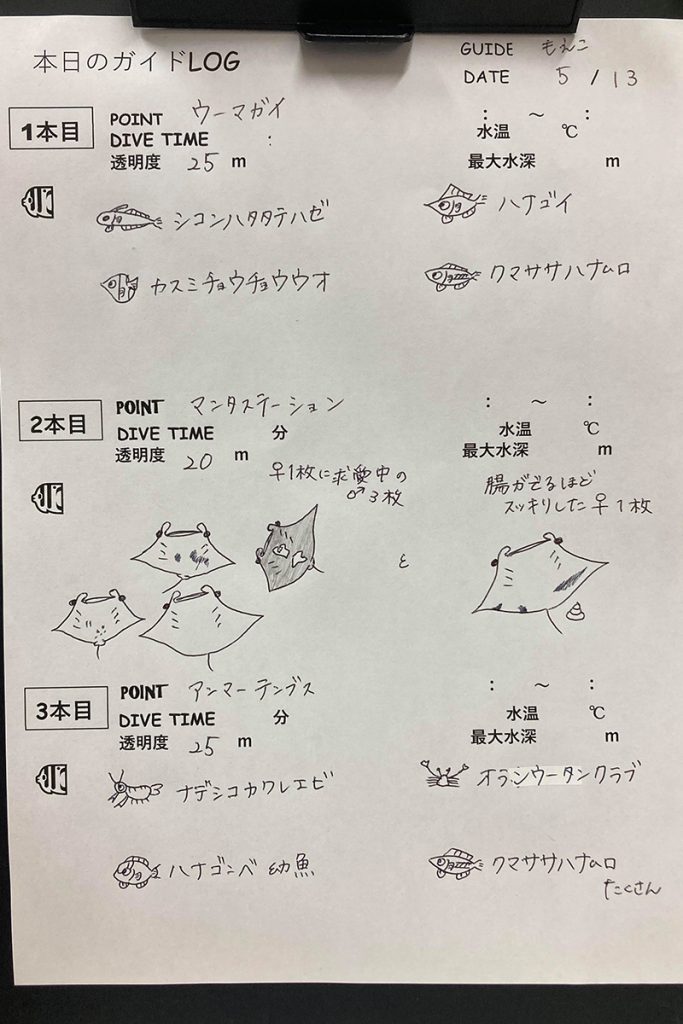 本日のガイドLOG
GUIDE もえこ
DATE 5 / 13
1本目
POINT ウーマガイ
DIVE TIME :
透明度 25 m
: ～ :
水温 ℃
最大水深 m
シコンハタタテハゼ
ハナゴイ
カスミチョウチョウウオ
クマササハナムロ
2本目
POINT マンタステーション
DIVE TIME 分
透明度 20 m
: ～ :
水温 ℃
最大水深 m
♀1枚に求愛中の
♂3枚
腸がでるほど
スッキリした♀1枚
&
3本目
POINT アンマーテンブス
DIVE TIME 分
透明度 25 m
: ～ :
水温 ℃
最大水深 m
ナデシコカクレエビ
オランウータンクラブ
ハナゴンベ 幼魚
クマササハナムロ
たくさん